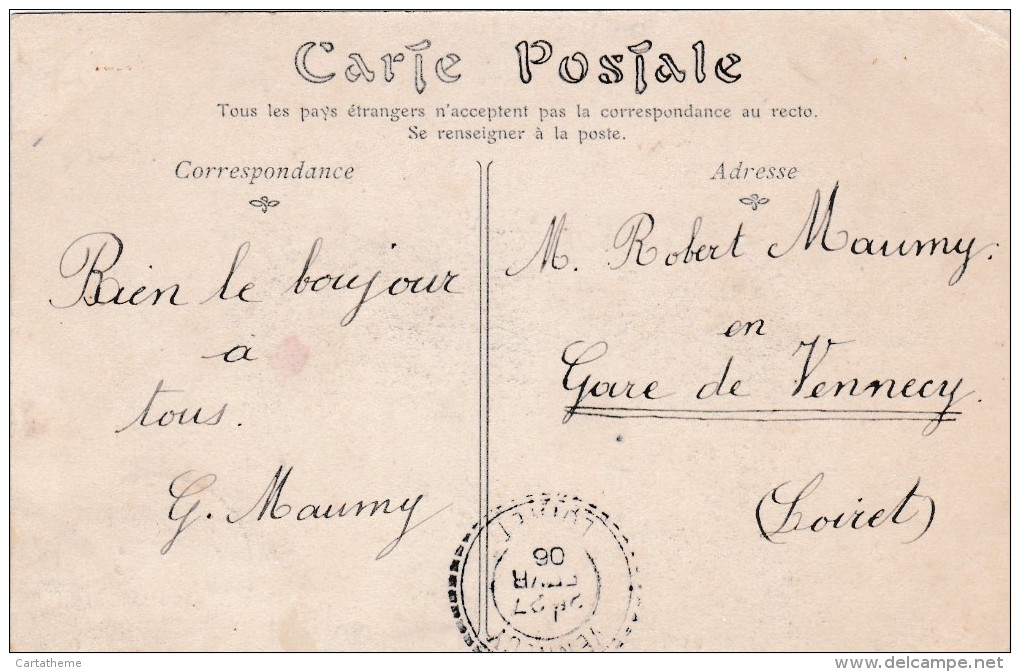 Carte Postale
Tous les pays étrangers n'acceptent pas la correspondance au recto.
Se renseigner à la poste.
Correspondance
Bien le boujour
a
tous.
G. Maumy
Adresse
M. Robert Maumy.
en
Gare de Vennecy.
(Loiret)
LOIRET
06
FEVR
27
Cartatheme
www.delcampe.net